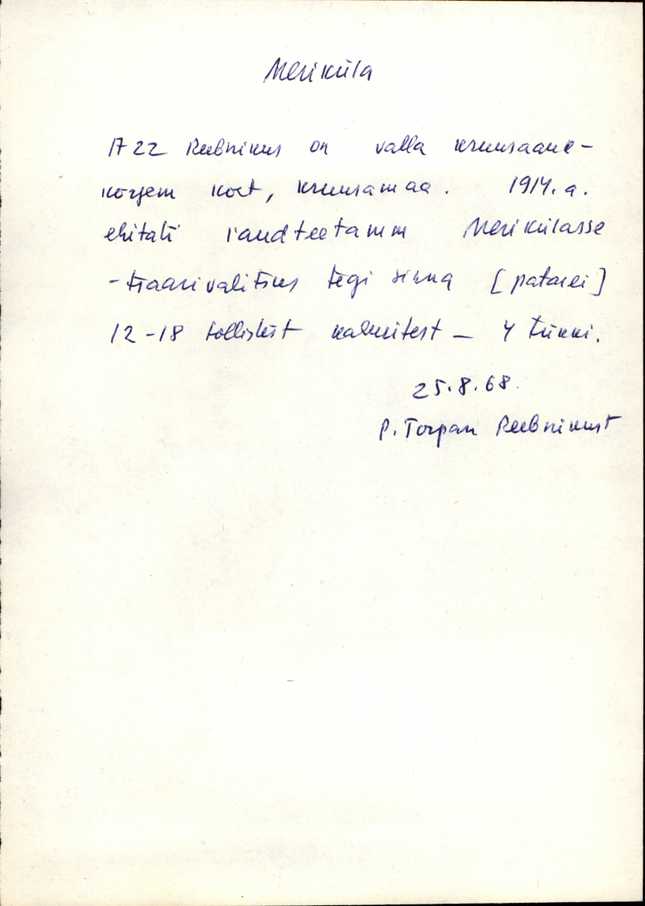 Meriküla
1722 Peebnikus on valla kruusaauk -
kõrgem koht, kruusamaa. 1914. a.
ehitati raudteetamm Merikülasse
- tsaarivalitsus tegi sinna [patarei]
12-18 tollistest kahuritest - 4 tükki.
25.8.68.
P. Torpan Peebnikust